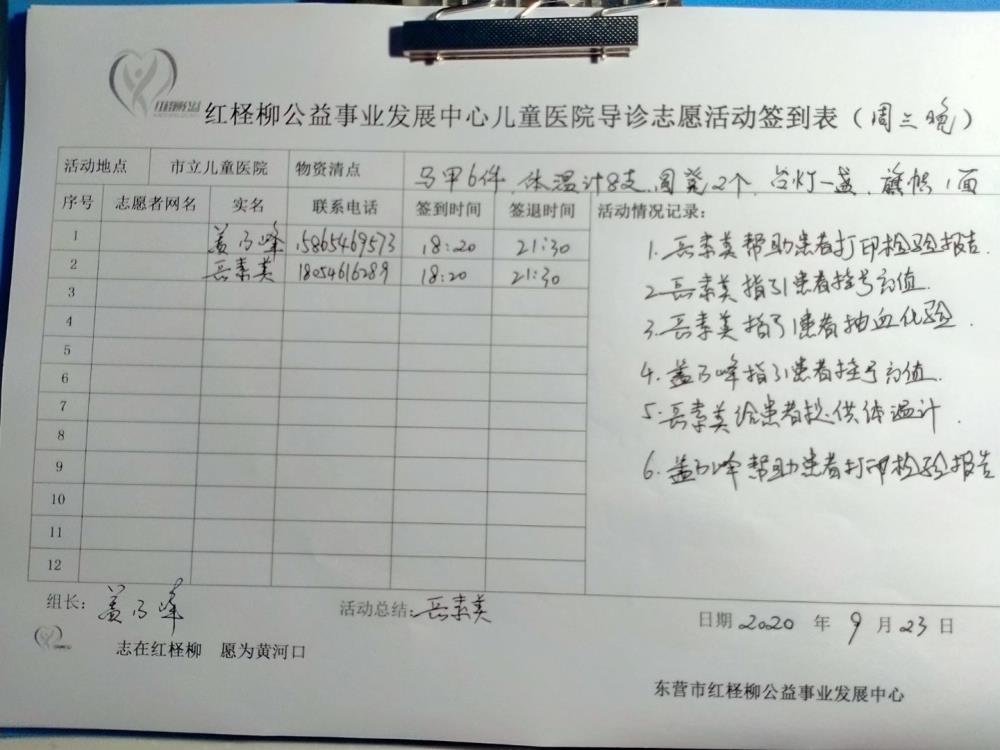 红柽柳公益事业发展中心儿童医院导诊志愿活动签到表（周三晚）
活动地点 市立儿童医院 物资清点 马甲6件 体温计8支 圆凳2个 台灯一盏 旗帜1面
序号 志愿者网名 实名 联系电话 签到时间 签退时间 活动情况记录：
1 盖乃峰 15865469573 18:20 21:30
2 岳素美 18054616289 18:20 21:30
3
4
5
6
7
8
9
10
11
12
1.岳素美帮助患者打印检验报告
2.岳素美指引患者挂号充值.
3.岳素美指引患者抽血化验.
4.盖乃峰指引患者挂号充值.
5.岳素美给患者提供体温计.
6.盖乃峰帮助患者打印检验报告
组长：盖乃峰 活动总结：岳素美 日期2020年9月23日
志在红柽柳 愿为黄河口
东营市红柽柳公益事业发展中心